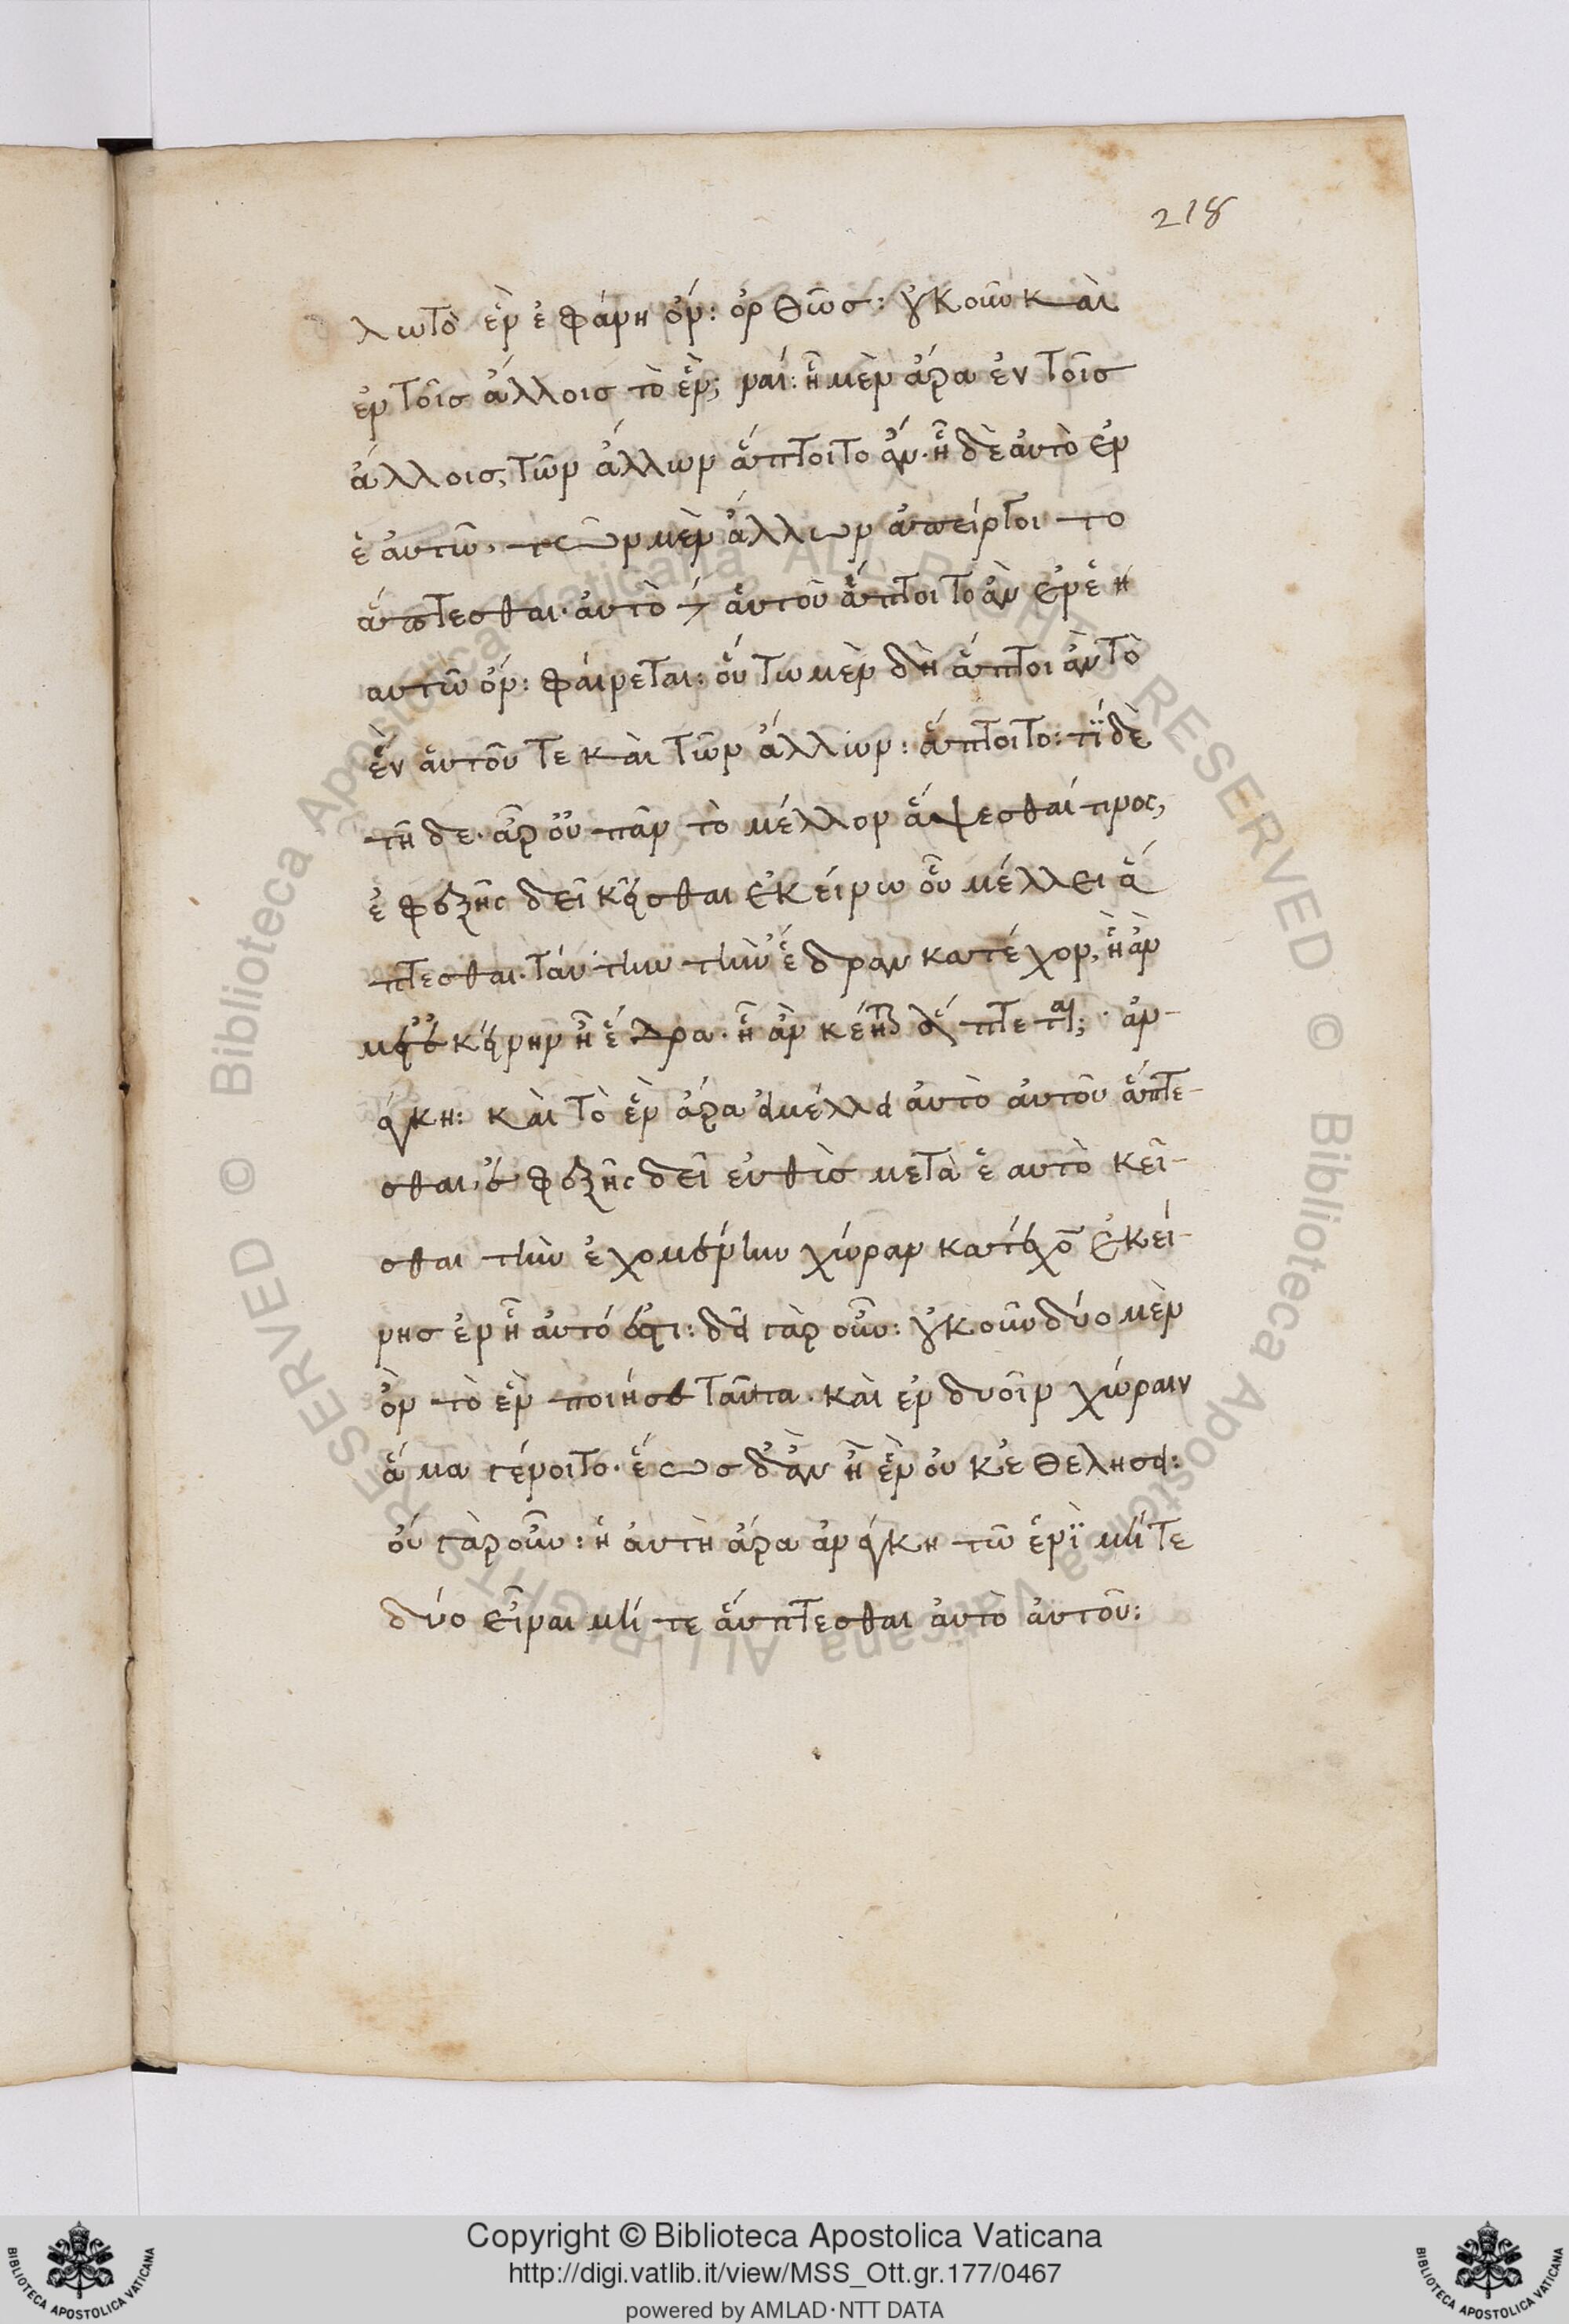 218
λωτὸ ἓν ἐφάνη ὄν: ὀρθῶσ: οὐκοῦν καὶ
ἐν τοῖσ ἄλλοισ τὸ ἕν; ναί: ἧ μὲν ἄρα ἐν τοῖσ
ἄλλοισ, τῶν ἄλλων ἅπτοιτο ἄν. ἧ δὲ αὐτὸ ἐν
ἑαυτῶ, τῶν μὲν ἄλλων ἀπείργοιτο
ἅπτεσθαι. αὐτὸ δὲ αὑτοῦ ἅπτοιτο ἂν ἐν ἑ
αυτῶ ὄν: φαίνεται: οὕτω μὲν δὴ ἅπτοι ἂν τὸ
ἓν αὑτοῦ τε καὶ τῶν ἄλλων: ἅπτοιτο: τί δὲ
τῆδε. ἆρ οὐ πᾶν τὸ μέλλον ἅψεσθαί τινος,
ἐφεξῆς δεῖ κεῖσθαι ἐκείνω οὗ μέλλει ἅ
πτεσθαι. ταύτην τὴν ἕδραν κατέχον, ἣ ἂν
μετ ἐκείνην ἦ ἕδρα. ἧ ἂν κέηται ἅπτεται; ἀν-
άγκη: καὶ τὸ ἓν ἄρα εἰ μέλλει αὐτὸ αὑτοῦ ἅπτε-
σθαι, ἐφεξῆς δεῖ εὐθὺσ μετὰ ἑαυτὸ κεῖ-
σθαι τὴν ἐχομένην χώραν κατέχον ἐκεί-
νησ ἐν ἧ αὐτό ἐστι: δεῖ γὰρ οὖν: οὐκοῦν δύο μὲν
ὂν τὸ ἓν ποιήσει ταῦτα. καὶ ἐν δυοῖν χώραιν
ἅμα γένοιτο. ἕωσ δ ἂν ἦ ἓν οὐκ ἐθελησει:
οὐ γὰρ οὖν: ἡ αὐτὴ ἄρα ἀνάγκη τῶ ἑνὶ μήτε
δύο εἶναι μήτε ἅπτεσθαι αὐτὸ αὑτοῦ:
Copyright © Biblioteca Apostolica Vaticana
http://digi.vatlib.it/view/MSS_Ott.gr.177/0467
powered by AMLAD·NTT DATA
BIBLIOTECA APOSTOLICA VATICANA
BIBLIOTECA APOSTOLICA VATICANA
© Biblioteca Apostolica Vaticana ALL RIGHTS RESERVED © Biblioteca Apostolica Vaticana ALL RIGHTS RESERVED